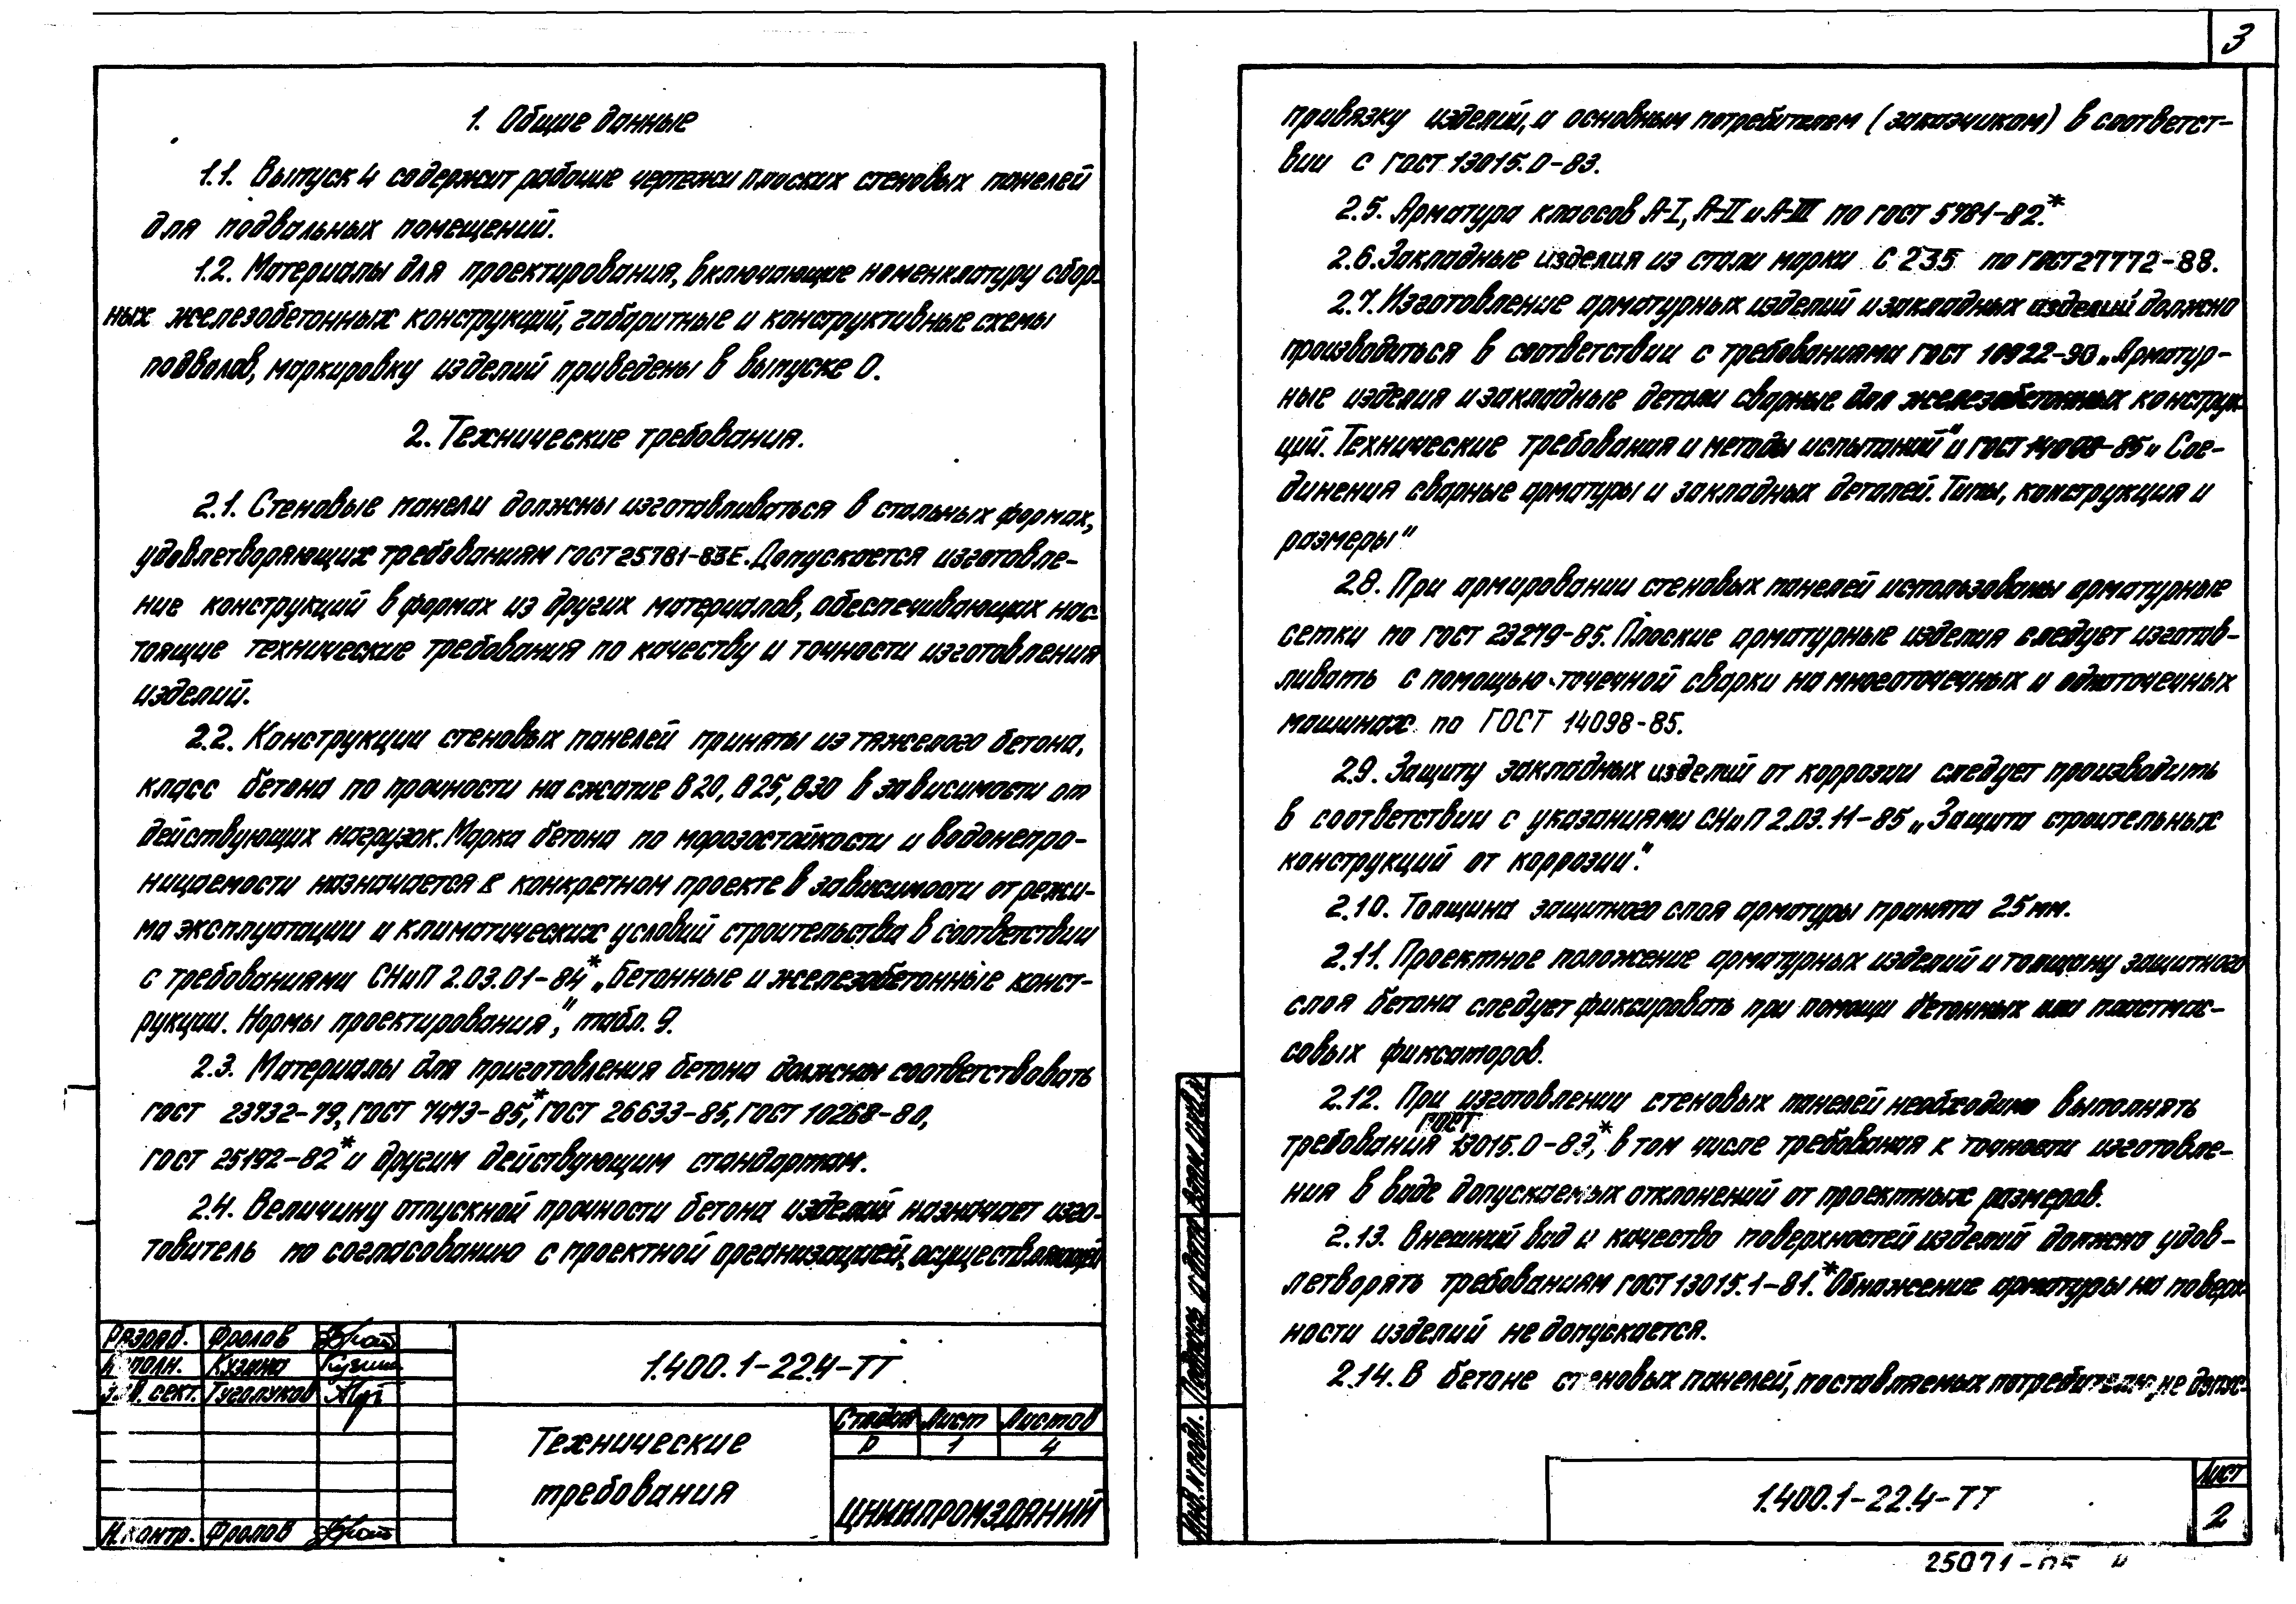 1. Общие данные
1.1. Выпуск 4 содержит рабочие чертежи плоских стеновых панелей
для подвальных помещений.
1.2. Материалы для проектирования, включающие номенклатуру сбор-
ных железобетонных конструкций, габаритные и конструктивные схемы
подвалов, маркировку изделий приведены в выпуске 0.
2. Технические требования.
2.1. Стеновые панели должны изготавливаться в стальных формах,
удовлетворяющих требованиям ГОСТ 25781-83Е. Допускается изготовле-
ние конструкций в формах из других материалов, обеспечивающих нас-
тоящие технические требования по качеству и точности изготовления
изделий.
2.2. Конструкции стеновых панелей приняты из тяжелого бетона,
класс бетона по прочности на сжатие В20, В25, В30 в зависимости от
действующих нагрузок. Марка бетона по морозостойкости и водонепро-
ницаемости назначается в конкретном проекте в зависимости от режи-
ма эксплуатации и климатических условий строительства в соответствии
с требованиями СНиП 2.03.01-84* „Бетонные и железобетонные конст-
рукции. Нормы проектирования", табл. 9.
2.3. Материалы для приготовления бетона должны соответствовать
ГОСТ 23732-79, ГОСТ 7473-85,* ГОСТ 26633-85, ГОСТ 10268-80,
ГОСТ 25192-82* и другим действующим стандартам.
2.4. Величину отпускной прочности бетона изделий назначает изго-
товитель по согласованию с проектной организацией, осуществляющей
Разраб. Фролов
Исполн. Кузина Кузина
Зав. сект. Туголуков
Н.контр. Фролов
1.400.1-22.4-ТТ
Технические
требования
Стадия Лист Листов
Р 1 4
ЦНИИПРОМЗДАНИЙ
3
привязку изделий, и основным потребителем (заказчиком) в соответст-
вии с ГОСТ 13015.0-83.
2.5. Арматура классов А-I, А-II и А-III по ГОСТ 5781-82.*
2.6. Закладные изделия из стали марки С 235 по ГОСТ 27772-88.
2.7. Изготовление арматурных изделий и закладных изделий должно
производиться в соответствии с требованиями ГОСТ 10922-90 „Арматур-
ные изделия и закладные детали сварные для железобетонных конструк-
ций. Технические требования и методы испытаний" и ГОСТ 14098-85 „Сое-
динения сварные арматуры и закладных деталей. Типы, конструкция и
размеры"
2.8. При армировании стеновых панелей использованы арматурные
сетки по ГОСТ 23279-85. Плоские арматурные изделия следует изготав-
ливать с помощью точечной сварки на многоточечных и одноточечных
машинах по ГОСТ 14098-85.
2.9. Защиту закладных изделий от коррозии следует производить
в соответствии с указаниями СНиП 2.03.11-85 „Защита строительных
конструкций от коррозии".
2.10. Толщина защитного слоя арматуры принята 25 мм.
2.11. Проектное положение арматурных изделий и толщину защитного
слоя бетона следует фиксировать при помощи бетонных или пластмас-
совых фиксаторов.
2.12. При изготовлении стеновых панелей необходимо выполнять
требования ГОСТ 13015.0-83,* в том числе требования к точности изготовле-
ния в виде допускаемых отклонений от проектных размеров.
2.13. Внешний вид и качество поверхностей изделий должно удов-
летворять требованиям ГОСТ 13015.1-81.* Обнажение арматуры на поверх-
ности изделий не допускается.
2.14. В бетоне стеновых панелей, поставляемых потребителю, не допус-
Инв. № подл. Подпись и дата Взам. инв. №
1.400.1-22.4-ТТ
Лист
2
25071-05 4